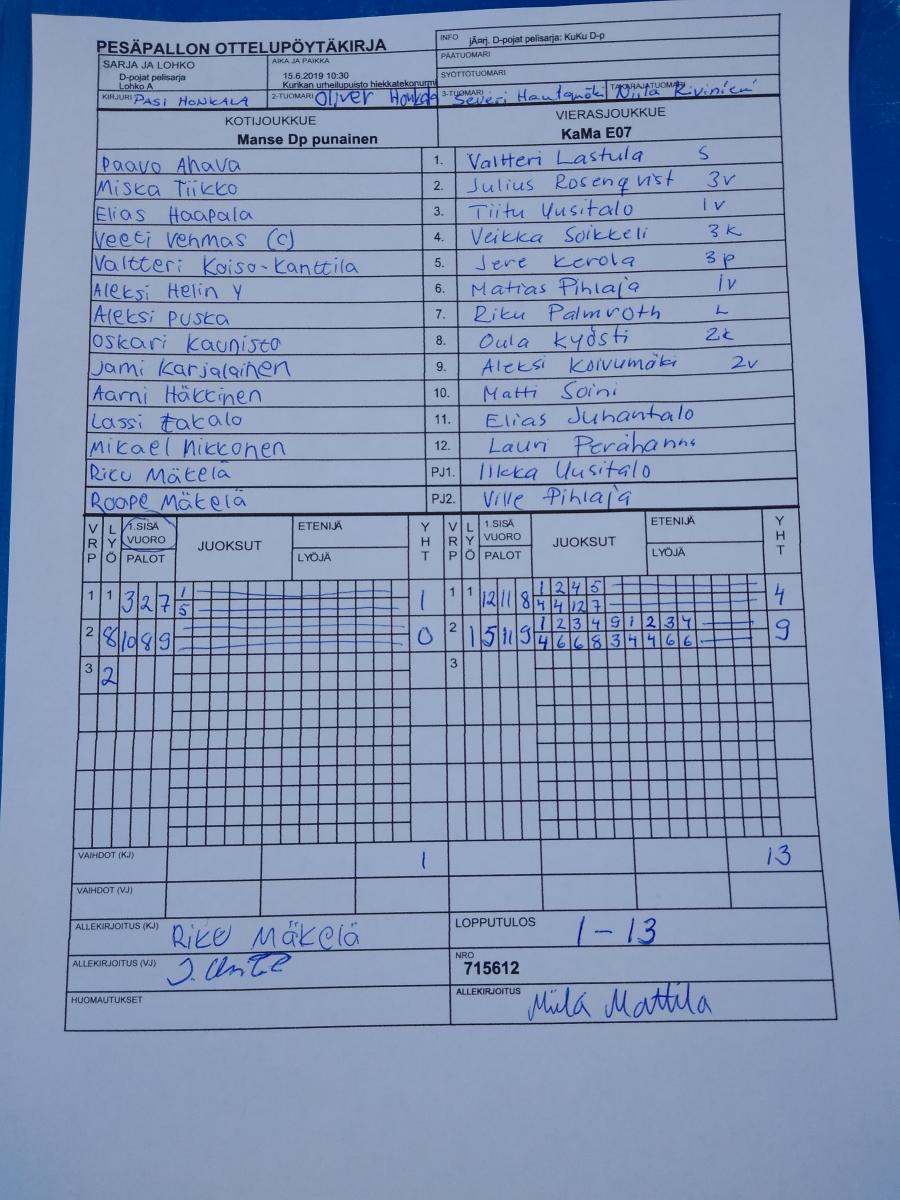 PESÄPALLON OTTELUPÖYTÄKIRJA
INFO jÄ¤rj. D-pojat pelisarja: KuKu D-p
PÄÄTUOMARI
SYÖTTÖTUOMARI
SARJA JA LOHKO
D-pojat pelisarja
Lohko A
AIKA JA PAIKKA
15.6.2019 10:30
Kurikan urheilupuisto hiekkatekonurmi
KIRJURI PASI HONKALA
2-TUOMARI OLIVER Honkala
3-TUOMARI Severi Hautamäki
TAKARAJATUOMARI Niila Kiviniemi
KOTIJOUKKUE
Manse Dp punainen
VIERASJOUKKUE
KaMa E07
Paavo Ahava 1. Valtteri Lastula S
Miska Tiikko 2. Julius Rosenqvist 3v
Elias Haapala 3. Tiitu Uusitalo 1v
Veeti Vehmas (c) 4. Veikka Soikkeli 3k
Valtteri Koiso-Kanttila 5. Jere Kerola 3p
Aleksi Helin Y 6. Matias Pihlaja 1v
Aleksi Puska 7. Riku Palmroth L
Oskari Kaunisto 8. Oula Kyösti 2k
Jami Karjalainen 9. Aleksi Koivumäki 2v
Aarni Häkkinen 10. Matti Soini
Lassi Takalo 11. Elias Juhantalo
Mikael Nikkonen 12. Lauri Perähannu
Riku Mäkelä PJ1. Ilkka Uusitalo
Roope Mäkelä PJ2. Ville Pihlaja
VRP LYÖ 1.SISÄ VUORO PALOT JUOKSUT ETENIJÄ LYÖJÄ YHT VRP LYÖ 1.SISÄ VUORO PALOT JUOKSUT ETENIJÄ LYÖJÄ YHT
1 1 3 2 7 1 1 1 1 12 11 8 1 2 4 5 4
5 4 4 12 7
2 8 10 8 9 0 2 1 5 11 9 1 2 3 4 9 1 2 3 4 9
4 6 6 8 3 4 4 6 6
3 2 3
VAIHDOT (KJ) 1 13
VAIHDOT (VJ)
ALLEKIRJOITUS (KJ) Riku Mäkelä
LOPPUTULOS 1-13
ALLEKIRJOITUS (VJ)
NRO
715612
HUOMAUTUKSET
ALLEKIRJOITUS Miila Mattila